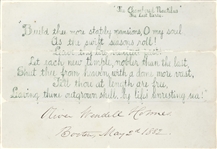 "The Chambered Nautilus"
The last verse.
"Build thee more stately mansions, O my soul,
As the swift seasons roll!
Leave thy low vaulted past!
Let each new temple, nobler than the last,
Shut thee from heaven with a dome more vast,
Till thou at length art free,
Leaving thine outgrown shell by life's unresting sea!"
Oliver Wendell Holmes
Boston May 1882.